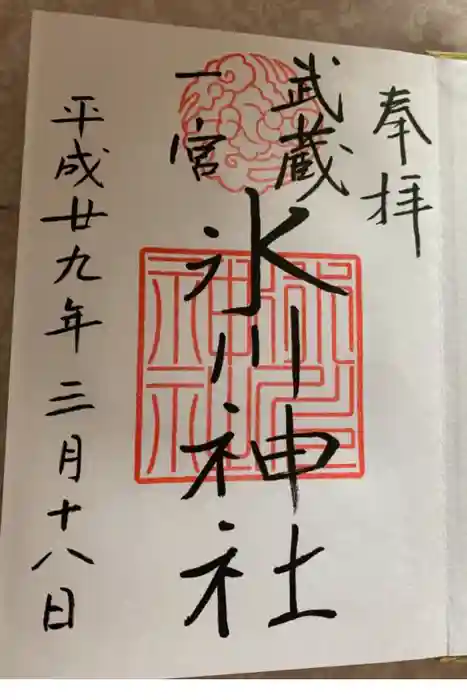 奉拝
武蔵
一宮
氷川神社
平成廿九年三月十八日